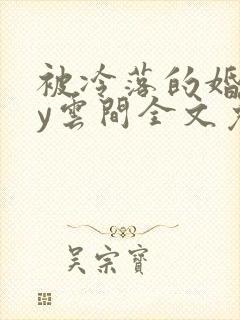 被冷落的婚
y雲間全文
吴宗寶